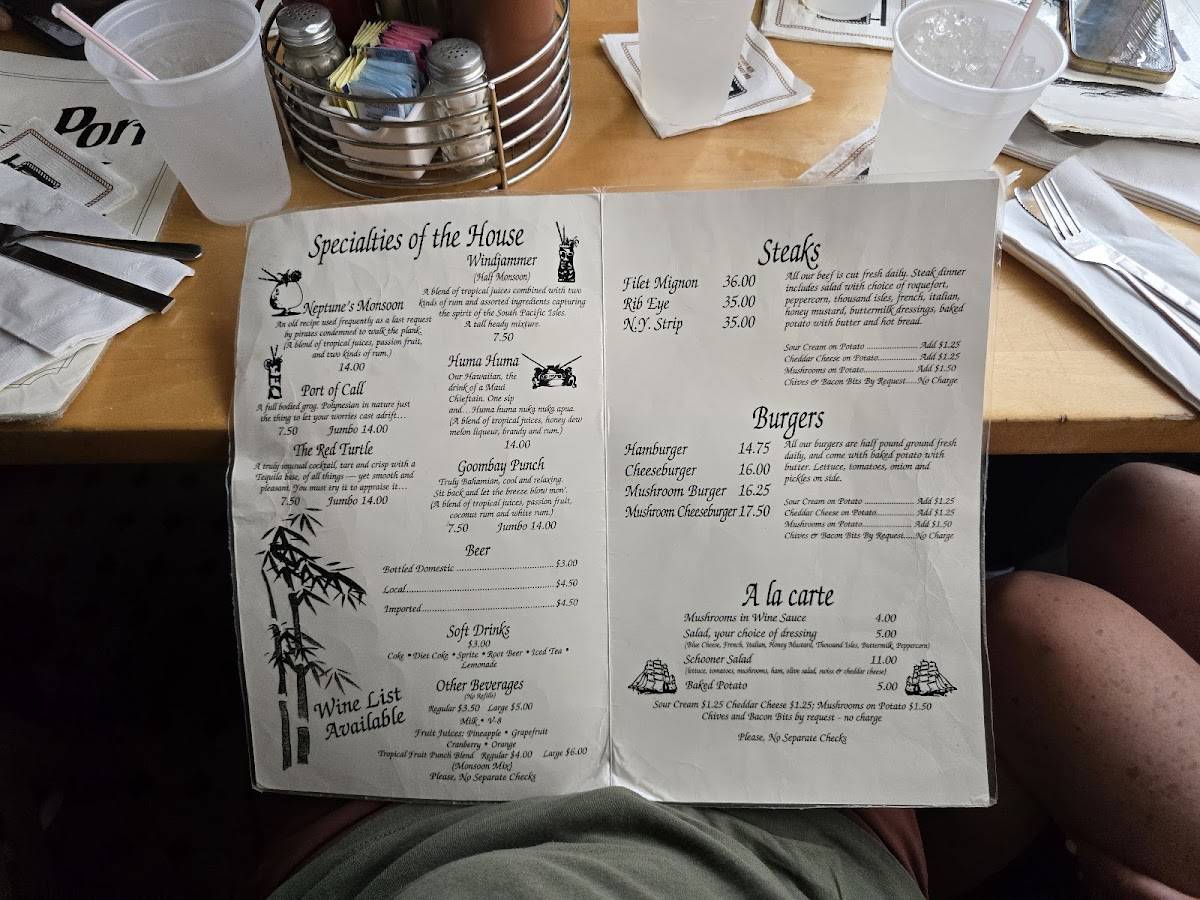 Don
Specialties of the House
Windjammer
(Half Monsoon)
A blend of tropical juices combined with two
kinds of rum and assorted ingredients capturing
the spirit of the South Pacific Isles.
A tall heady mixture.
7.50
Neptune's Monsoon
An old recipe used frequently as a last request
by pirates condemned to walk the plank.
(A blend of tropical juices, passion fruit,
and two kinds of rum.)
14.00
Huma Huma
Our Hawaiian, the
drink of a Maui
Chieftain. One sip
and...Huma huma nuka nuka apua.
(A blend of tropical juices, honey dew
melon liqueur, brandy and rum.)
14.00
Port of Call
A full bodied grog. Polynesian in nature just
the thing to let your worries cast adrift...
7.50 Jumbo 14.00
The Red Turtle
A truly unusual cocktail, tart and crisp with a
Tequila base, of all things — yet smooth and
pleasant. You must try it to appraise it...
7.50 Jumbo 14.00
Goombay Punch
Truly Bahamian, cool and relaxing.
Sit back and let the breeze blow mon'.
(A blend of tropical juices, passion fruit,
coconut rum and white rum.)
7.50 Jumbo 14.00
Beer
Bottled Domestic ........ $3.00
Local ........ $4.50
Imported ........ $4.50
Soft Drinks
$3.00
Coke • Diet Coke • Sprite • Root Beer • Iced Tea •
Lemonade
Other Beverages
(No Refills)
Regular $3.50 Large $5.00
Milk • V-8
Fruit Juices: Pineapple • Grapefruit
Cranberry • Orange
Tropical Fruit Punch Blend Regular $4.00 Large $6.00
(Monsoon Mix)
Please, No Separate Checks
Wine List
Available
Steaks
Filet Mignon 36.00
Rib Eye 35.00
N.Y. Strip 35.00
All our beef is cut fresh daily. Steak dinner
includes salad with choice of roquefort,
peppercorn, thousand isles, french, italian,
honey mustard, buttermilk dressings, baked
potato with butter and hot bread.
Sour Cream on Potato ........ Add $1.25
Cheddar Cheese on Potato ........ Add $1.25
Mushrooms on Potato ........ Add $1.50
Chives & Bacon Bits By Request ..... No Charge
Burgers
Hamburger 14.75
Cheeseburger 16.00
Mushroom Burger 16.25
Mushroom Cheeseburger 17.50
All our burgers are half pound ground fresh
daily, and come with baked potato with
butter. Lettuce, tomatoes, onion and
pickles on side.
Sour Cream on Potato ........ Add $1.25
Cheddar Cheese on Potato ........ Add $1.25
Mushrooms on Potato ........ Add $1.50
Chives & Bacon Bits By Request ..... No Charge
A la carte
Mushrooms in Wine Sauce 4.00
Salad, your choice of dressing 5.00
(Blue Cheese, French, Italian, Honey Mustard, Thousand Isles, Buttermilk, Peppercorn)
Schooner Salad 11.00
(lettuce, tomatoes, mushrooms, ham, olive salad, swiss & cheddar cheese)
Baked Potato 5.00
Sour Cream $1.25 Cheddar Cheese $1.25; Mushrooms on Potato $1.50
Chives and Bacon Bits by request - no charge
Please, No Separate Checks